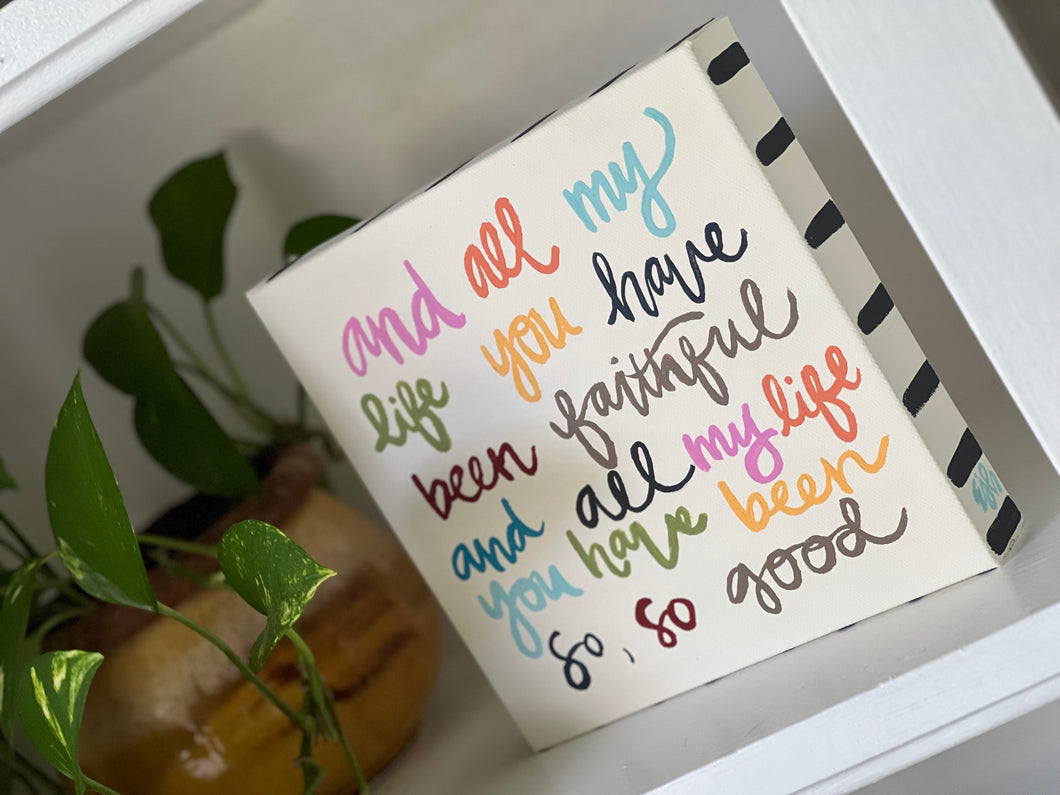 and all my
life you have
been faithful
and all my life
you have been
so, so good